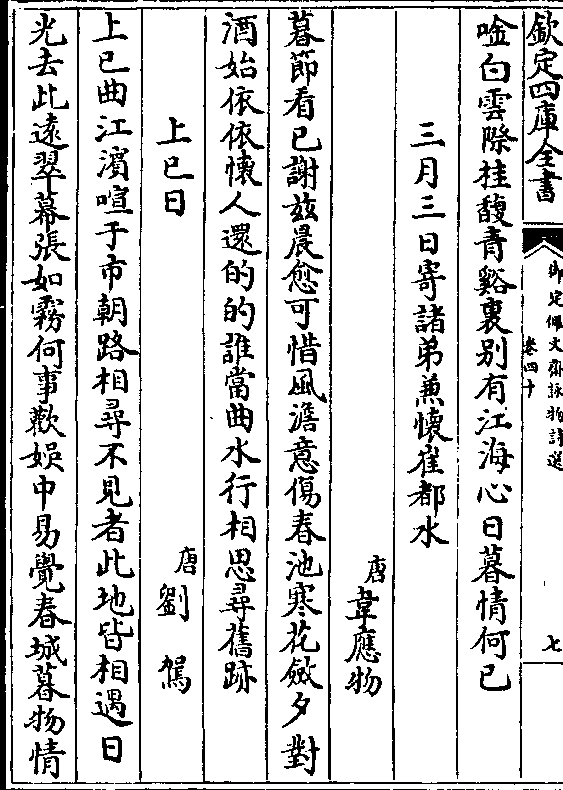 欽定四庫全書
御定佩文齋詠物詩選
卷四十
七
唫白雲際桂馥青谿裏别有江海心日暮情何已
三月三日寄諸弟兼懷崔都水
唐韋應物
暮節看已謝兹晨愈可惜風澹意傷春池寒花斂夕對
酒始依依懷人還的的誰當曲水行相思尋舊跡
上巳日
唐劉駕
上巳曲江濱喧于市朝路相尋不見者此地皆相遇日
光去此遠翠幕張如霧何事歡娛中易覺春城暮物情